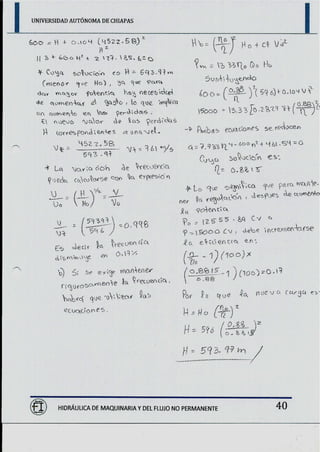 UNIVERSIDAD AUTÓNOMA DE CHIAPAS
600 = H + 0.104 (4522.58)²
H²
H³ + 600 H² + 2 127, 185.600
* Cuya solución es H = 593.97 m
(menor que Ho), ya que para
dar mayor potencia hay necesidad
de aumentar el gasto, lo que implica
un aumento en las perdidas.
El nuevo valor de las perdidas
H correspondientes a una vel.
V = 4522.58 / 593.97 V = 7.61 m/s
* La variación de frecuencia
puede calcularse con la expresión
U/Uo = (H/Ho)^½ = V/Vo
U = (593.97/596) = 0.998
Es decir la frecuencia
disminuye en 0.17%
b) Si se exige mantener
rigurosamente la frecuencia,
habrá que utilizar las
ecuaciones.
Hb = (ηo/η)² Ho + cf V²
Pm = 13.33 η Q Ho
Sustituyendo
600 = (0.88/η)² (596) + 0.104 V²
15000 = 13.33
→ Ambas ecuaciones se reducen
Cuya solución es:
η = 0.8815
* Lo que significa que para mante-
ner la regulación, después de aumentar
la potencia
Po = 12555.89 CV a
P = 15000 CV, debe incrementarse
la eficiencia en:
(η/ηo - 1)(100)%
(0.8815/0.88 - 1)(100) = 0.17
Por lo que la nueva carga es:
H = Ho (ηo/η)²
H = 596 (0.88/0.8815)²
H = 593.97 m
HIDRÁULICA DE MAQUINARIA Y DEL FLUJO NO PERMANENTE
40